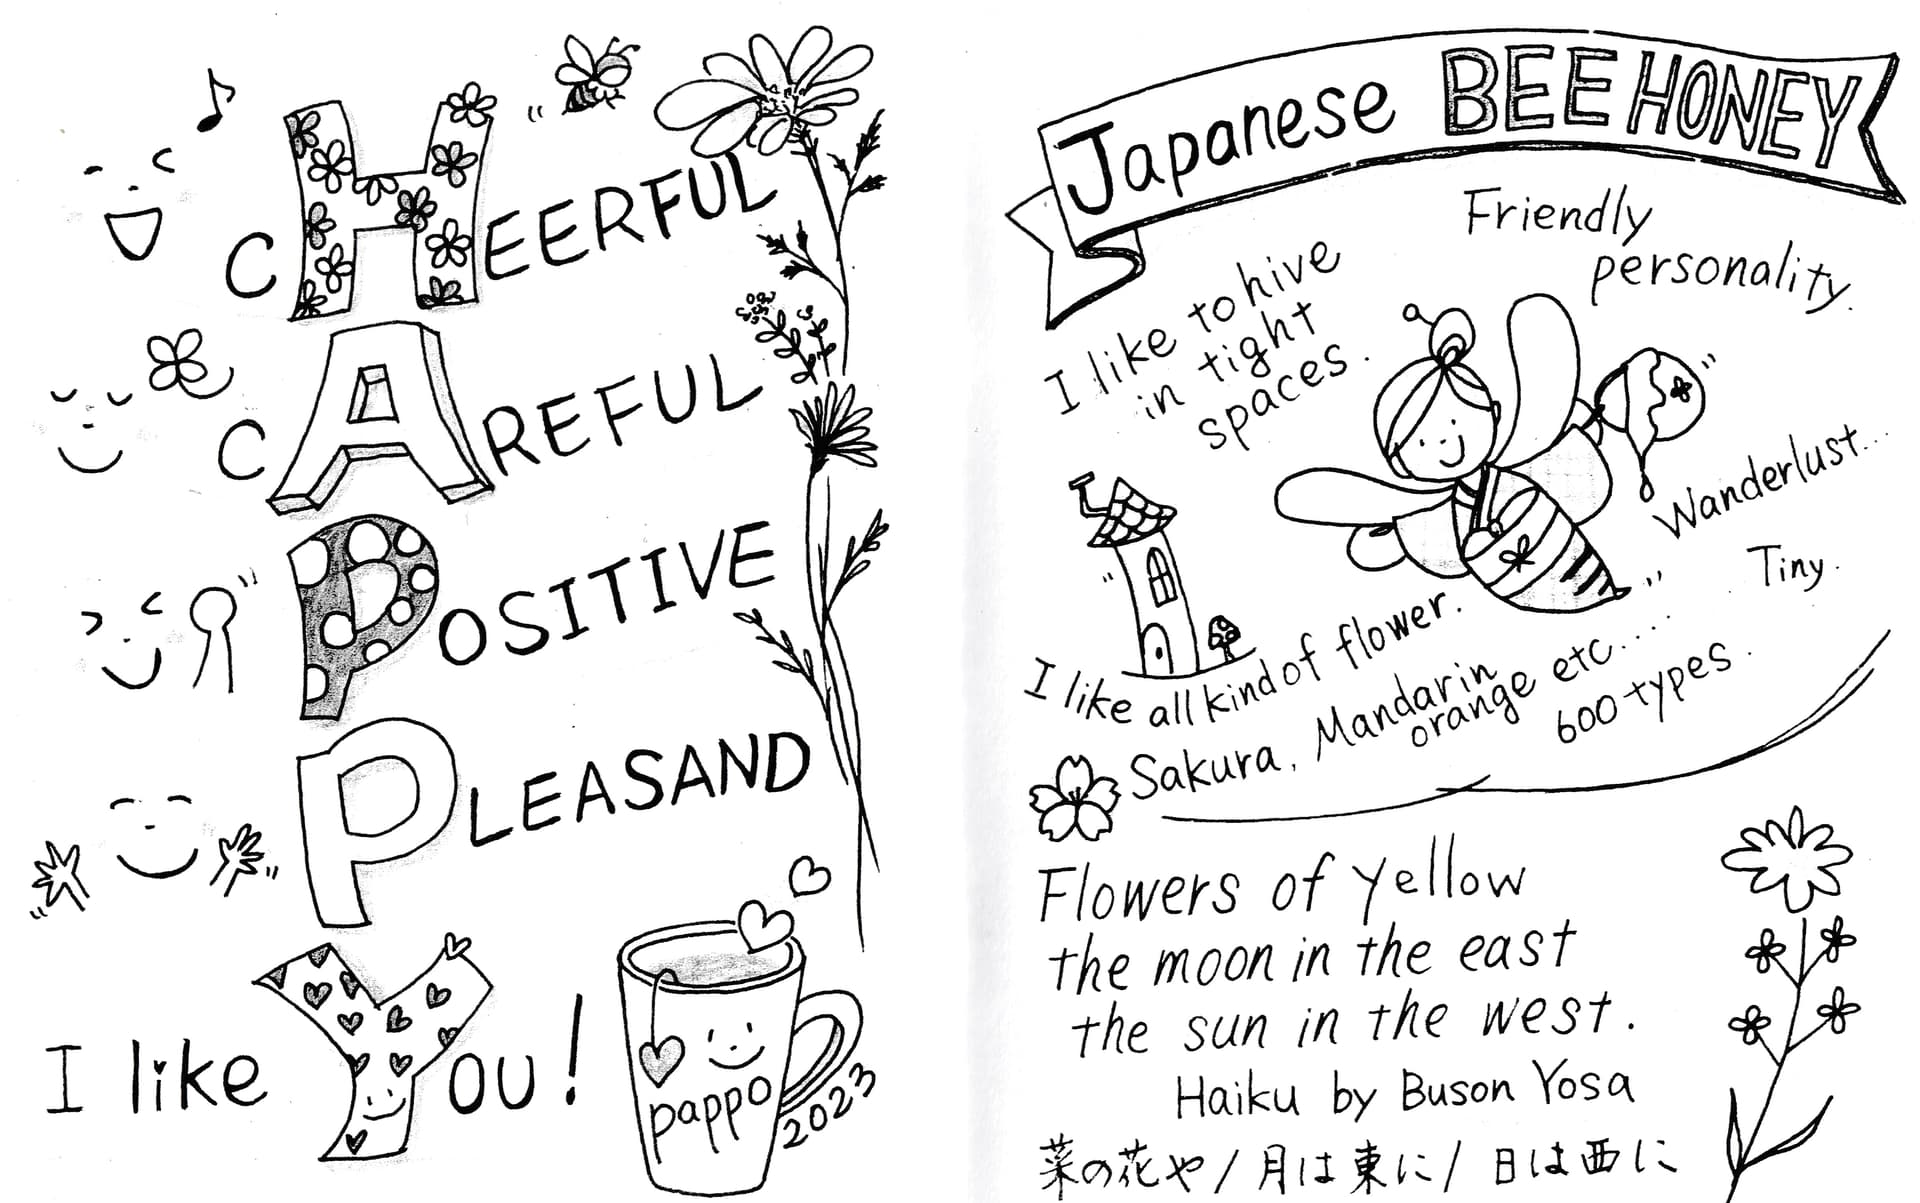 CHEERFUL
CAREFUL
POSITIVE
PLEASAND
I like You!
pappo
2023
Japanese BEE HONEY
Friendly
personality.
I like to hive
in tight
spaces.
Wanderlust...
Tiny.
I like all kind of flower.
Sakura, Mandarin
orange etc.....
600 types.
Flowers of yellow
the moon in the east
the sun in the west.
Haiku by Buson Yosa
菜の花や/月は東に/日は西に